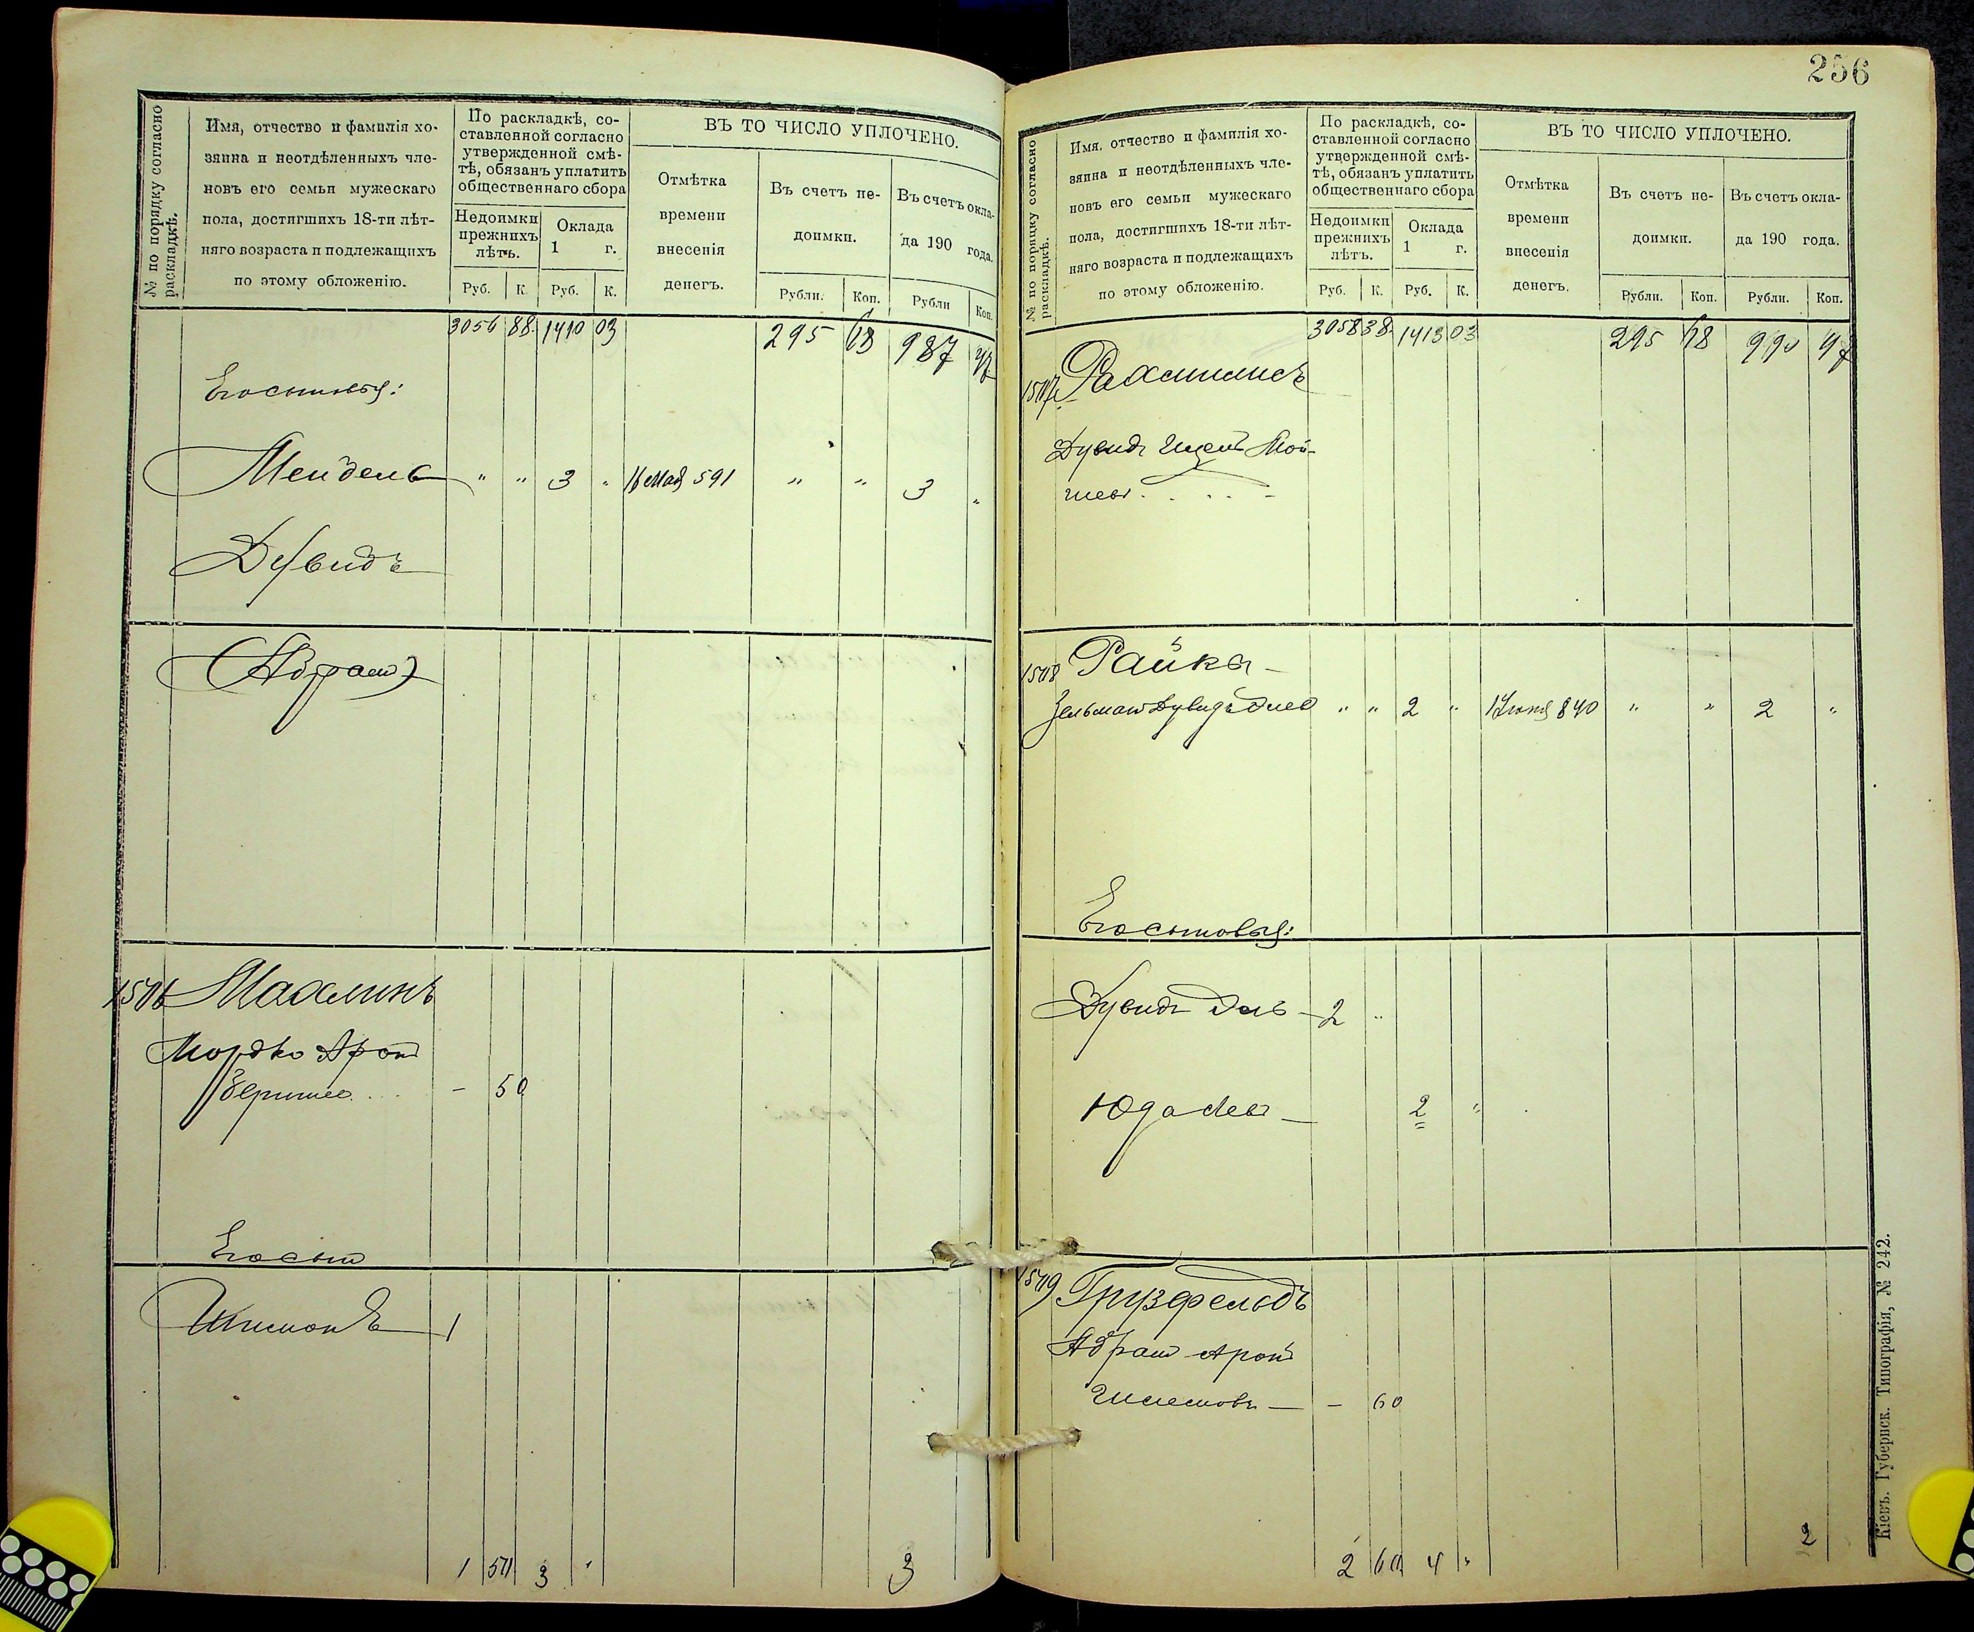 № по порядку согласно
раскладкѣ.
Имя, отчество и фамилія хо-
зяина и неотдѣленныхъ чле-
новъ его семьи мужескаго
пола, достигшихъ 18-ти лѣт-
няго возраста и подлежащихъ
по этому обложенію.
По раскладкѣ, со-
ставленной согласно
утвержденной смѣ-
тѣ, обязанъ уплатить
общественнаго сбора
Недоимки
прежнихъ
лѣтъ.
Оклада
1 г.
Руб. К. Руб. К.
ВЪ ТО ЧИСЛО УПЛОЧЕНО.
Отмѣтка
времени
внесенія
денегъ.
Въ счетъ не-
доимки.
Рубли. Коп.
Въ счетъ окла-
да 190 года.
Рубли Коп.
3056 88 1410 03 295 68 987 47
Его сыновья:
Мендель " " 3 " 16 Мая 591 " " 3 "
Дувидъ
Абрам
1506 Махлинъ
Мордко Арон
Берков... - 50
Его сын
Шимонъ 1
1 50 3 " 3
256
№ по порядку согласно
раскладкѣ.
Имя, отчество и фамилія хо-
зяина и неотдѣленныхъ чле-
новъ его семьи мужескаго
пола, достигшихъ 18-ти лѣт-
няго возраста и подлежащихъ
по этому обложенію.
По раскладкѣ, со-
ставленной согласно
утвержденной смѣ-
тѣ, обязанъ уплатить
общественнаго сбора
Недоимки
прежнихъ
лѣтъ.
Оклада
1 г.
Руб. К. Руб. К.
ВЪ ТО ЧИСЛО УПЛОЧЕНО.
Отмѣтка
времени
внесенія
денегъ.
Въ счетъ не-
доимки.
Рубли. Коп.
Въ счетъ окла-
да 190 года.
Рубли. Коп.
3058 38 1413 03 295 68 990 47
1507
Дувидъ Ицекъ Мой-
1508 Райка
Зельман Дувидъ " " 2 " 840 " " 2 "
Его сыновья:
Дувидъ 2 "
Юда Лейб 2 "
1509 Грузфельдъ
Абрам Арон
- 60
2 60 4 " 2
Кіевъ. Губернск. Типографія, № 242.